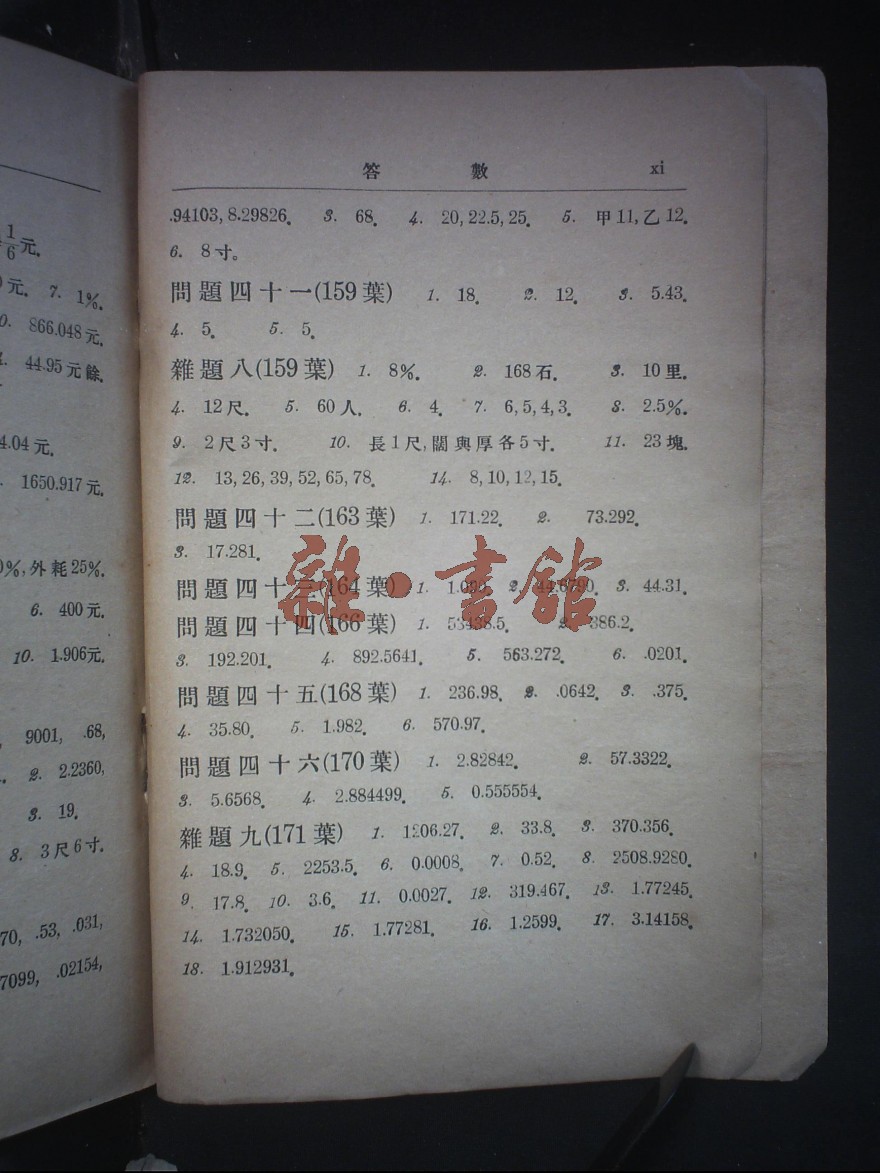 1/6元.
元. 7. 1%.
0. 866.048元.
44.95元餘.
4.04元.
1650.917元.
%,外耗25%.
6. 400元.
10. 1.906元.
9001, .68,
2. 2.2360,
3. 19.
8. 3尺6寸.
70, .53, .031,
7099, .02154,
答 數 xi
.94103, 8.29826. 3. 68. 4. 20, 22.5, 25. 5. 甲11,乙12.
6. 8寸。
問題四十一(159葉) 1. 18. 2. 12. 3. 5.43.
4. 5. 5. 5.
雜題八(159葉) 1. 8%. 2. 168石. 3. 10里.
4. 12尺. 5. 60人. 6. 4. 7. 6, 5, 4, 3. 8. 2.5%.
9. 2尺3寸. 10. 長1尺,闊與厚各5寸. 11. 23塊.
12. 13, 26, 39, 52, 65, 78. 14. 8, 10, 12, 15.
問題四十二(163葉) 1. 171.22. 2. 73.292.
3. 17.281.
問題四十三(164葉) 1. 2. 3. 44.31.
雜·書館
問題四十四(166葉) 1. 53438.5. 2. 386.2.
3. 192.201. 4. 892.5641. 5. 563.272. 6. .0201.
問題四十五(168葉) 1. 236.98. 2. .0642. 3. .375.
4. 35.80. 5. 1.982. 6. 570.97.
問題四十六(170葉) 1. 2.82842. 2. 57.3322.
3. 5.6568. 4. 2.884499. 5. 0.555554.
雜題九(171葉) 1. 1206.27. 2. 33.8. 3. 370.356.
4. 18.9. 5. 2253.5. 6. 0.0008. 7. 0.52. 8. 2508.9280.
9. 17.8. 10. 3.6. 11. 0.0027. 12. 319.467. 13. 1.77245.
14. 1.732050. 15. 1.77281. 16. 1.2599. 17. 3.14158.
18. 1.912931.